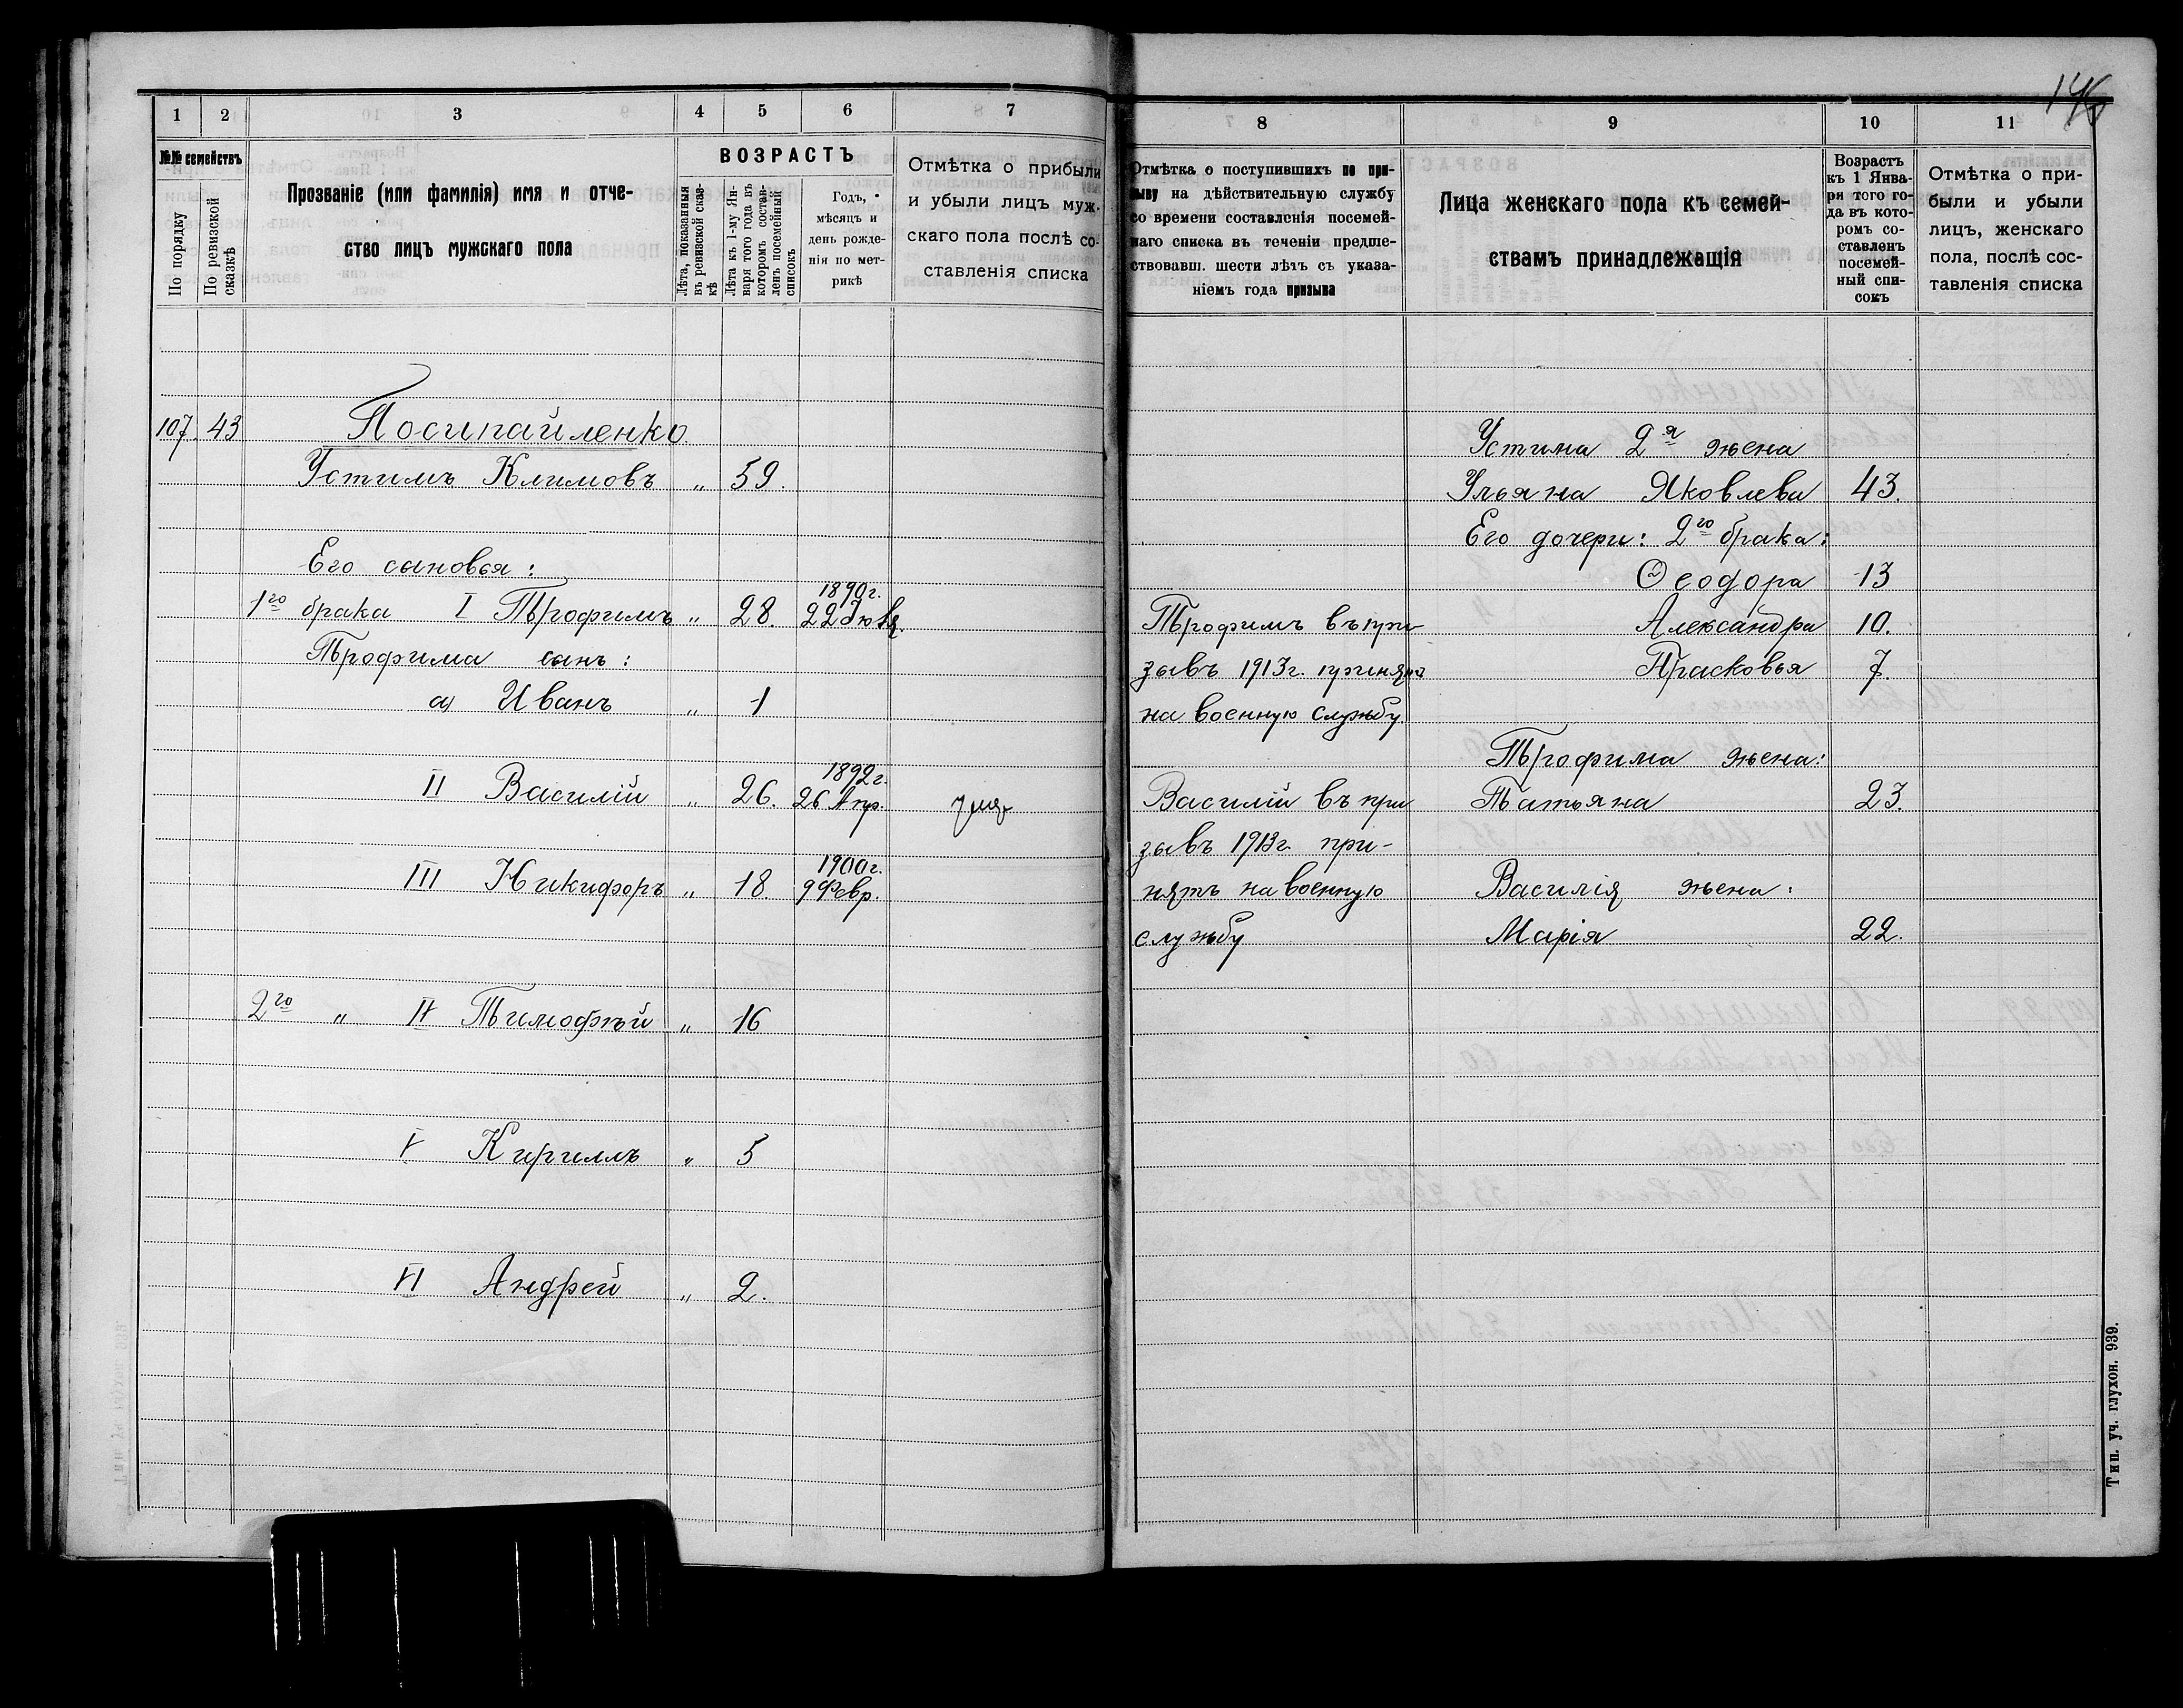 146
1 2 3 4 5 6 7
№№ семействъ
По порядку
По ревизской сказкѣ
Прозваніе (или фамилія) имя и отче-
ство лицъ мужскаго пола
ВОЗРАСТЪ
Лѣта, показанныя
въ ревизской сказ-
кѣ
Лѣта къ 1-му Ян-
варя того года въ
которомъ состав-
ленъ посемейный
списокъ
Годъ,
мѣсяцъ и
день рожде-
нія по мет-
рикѣ
Отмѣтка о прибыли
и убыли лицъ муж-
скаго пола послѣ со-
ставленія списка
107. 43 Посипайленко
Устимъ Климовъ „ 59.
Его сыновья:
1890г.
1го брака I Трофимъ „ 28. 22 Іюля.
Трофима сынъ:
а) Иванъ „ 1
1892г.
II Василій „ 26. 26 Апр.
1900г.
III Никифоръ „ 18. 9 Февр.
2го „ IV Тимофѣй „ 16
V Кириллъ „ 5
VI Андрей „ 2.
8 9 10 11
Отмѣтка о поступившихъ по при-
зыву на дѣйствительную службу
со времени составленія посемей-
наго списка въ теченіи предше-
ствовавш. шести лѣтъ съ указа-
ніемъ года призыва
Лица женскаго пола къ семей-
ствамъ принадлежащія
Возрастъ
къ 1 Янва-
ря того го-
да въ кото-
ромъ со-
ставленъ
посемей-
ный спи-
сокъ
Отмѣтка о при-
были и убыли
лицъ, женскаго
пола, послѣ сос-
тавленія списка
Устима 2я жена
Ульяна Яковлева 43.
Его дочери: 2го брака:
Ѳеодора 13
Трофимъ въ при- Александра 10.
зывъ 1913г. принятъ Прасковья 7.
на военную службу.
Трофима жена:
Василій въ при Татьяна 23.
зывъ 1913г. при-
нятъ на военную Василія жена:
службу Марія 22.
Тип. уч. глухон. 939.